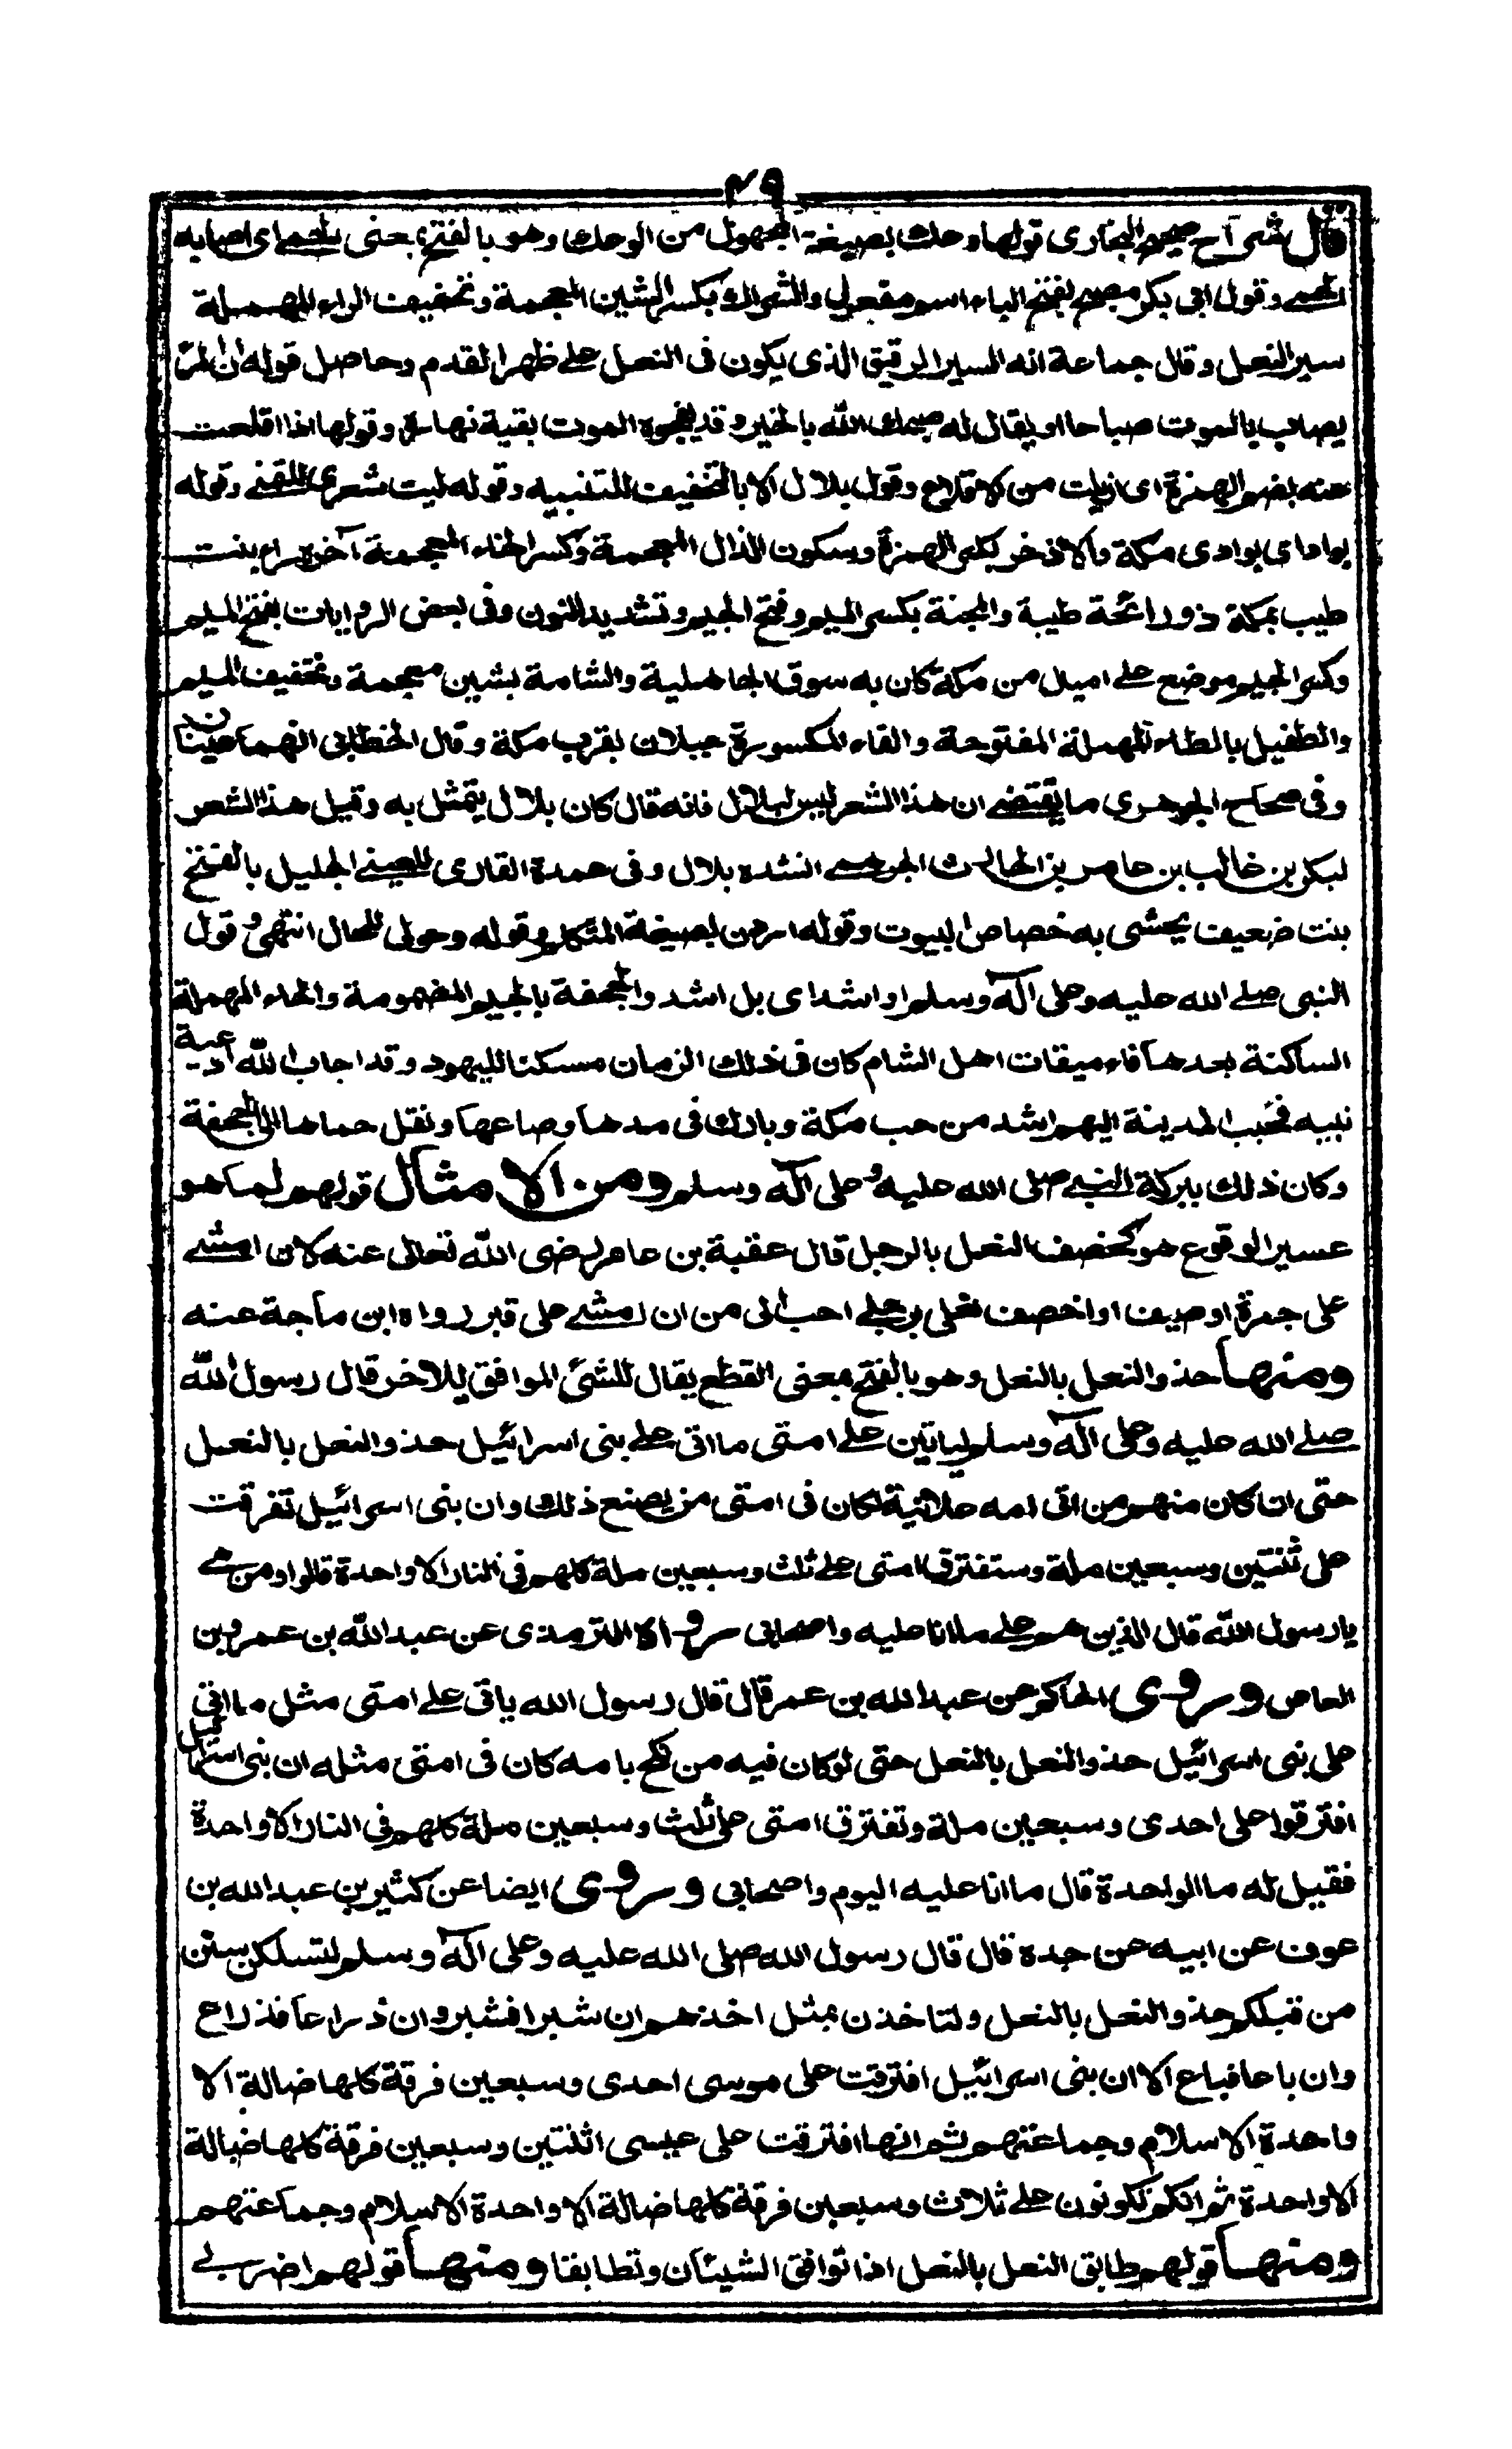 ٢٩
قال شراح صحيح البخارى قولها وعك بصيغة المجهول من الوعك وهو بالفتح بمعنى الحمى اى اصابه
الحمى وقول ابى بكر مصبح بفتح الباء اسم مفعول والشراك بكسر الشين المعجمة وتخفيف الراء المهملة
سير النعل وقال جماعة انه السير الرقيق الذى يكون فى النعل على ظهر القدم وحاصل قوله ان المرء
يصاب بالموت صباحا او يقال له صبحك الله بالخير وقد يفجوه الموت بقية نهاره وقولها اذا اقلعت
عنه بضم الهمزة اى ازيلت من الاقلاع وقول بلال الا بالتخفيف للتنبيه وقوله ليت شعرى للتمنى وقوله
بواد اى بوادى مكة والاذخر بكسر الهمزة وسكون الذال المعجمة وكسر الخاء المعجمة آخره راء بنت
طيب بمكة ذو رائحة طيبة والمجنة بكسر الميم وفتح الجيم وتشديد النون وفى بعض الروايات بفتح الميم
وكسر الجيم موضع على اميال من مكة كان به سوق الجاهلية والشامة بشين معجمة وتخفيف الميم
والطفيل بالطاء المهملة المفتوحة والفاء المكسورة جبلان بقرب مكة وقال الخطابى انهما عينان
وفى صحاح الجوهرى ما يقتضى ان هذا الشعر ليس لبلال فانه قال كان بلال يتمثل به وقيل هذا الشعر
لبكر بن غالب بن عامر بن الحارث الجرهمى انشده بلال وفى عمدة القارى للعينى الجليل بالفتح
بنت ضعيف يحشى به خصاص البيوت وقوله اردن بصيغة المتكلم وقوله وحولى للحال انتهى وقول
النبى صلى الله عليه وعلى آله وسلم او اشد اى بل اشد والجحفة بالجيم المضمومة والحاء المهملة
الساكنة بعدها فاء ميقات اهل الشام كان فى ذلك الزمان مسكنا لليهود وقد اجاب الله ادعية
نبيه فحبب المدينة اليهم اشد من حب مكة وبارك فى مدها وصاعها ونقل حماها الى الجحفة
وكان ذلك ببركة النبى صلى الله عليه وعلى آله وسلم ومن الامثال قولهم لما هو
عسير الوقوع هو كخصف النعل بالرجل قال عقبة بن عامر رضى الله تعالى عنه لان امشى
على جمرة او صيف او اخصف نعلى برجلى احب الى من ان امشى على قبر رواه ابن ماجة عنه
ومنها حذو النعل بالنعل وهو بالفتح بمعنى القطع يقال للشئ الموافق للاخر قال رسول الله
صلى الله عليه وعلى آله وسلم لياتين على امتى ما اتى على بنى اسرائيل حذو النعل بالنعل
حتى ان كان منهم من اتى امه علانية لكان فى امتى من يصنع ذلك وان بنى اسرائيل تفرقت
على ثنتين وسبعين ملة وستفترق امتى على ثلث وسبعين ملة كلهم فى النار الا واحدة قالوا ومن هى
يا رسول الله قال الذين هم على ما انا عليه واصحابى رواه الترمذى عن عبد الله بن عمرو بن
العاص وروى الحاكم عن عبد الله بن عمر قال قال رسول الله ياتى على امتى مثل ما اتى
على بنى اسرائيل حذو النعل بالنعل حتى لو كان فيه من نكح بامه كان فى امتى مثله ان بنى اسرائيل
افترقوا على احدى وسبعين ملة وتفترق امتى على ثلث وسبعين ملة كلهم فى النار الا واحدة
فقيل له ما الواحدة قال ما انا عليه اليوم واصحابى وروى ايضا عن كثير بن عبد الله بن
عوف عن ابيه عن جده قال قال رسول الله صلى الله عليه وعلى آله وسلم لتسلكن سنن
من قبلكم حذو النعل بالنعل ولتاخذن بمثل اخذهم ان شبرا فشبر وان ذراعا فذراع
وان باعا فباع الا ان بنى اسرائيل افترقت على موسى احدى وسبعين فرقة كلها ضالة الا
واحدة الاسلام وجماعتهم ثم انها افترقت على عيسى اثنتين وسبعين فرقة كلها ضالة
الا واحدة ثم انكم تكونون على ثلاث وسبعين فرقة كلها ضالة الا واحدة الاسلام وجماعتهم
ومنها قولهم طابق النعل بالنعل اذا توافق الشيئان وتطابقا ومنها قولهم اضربى